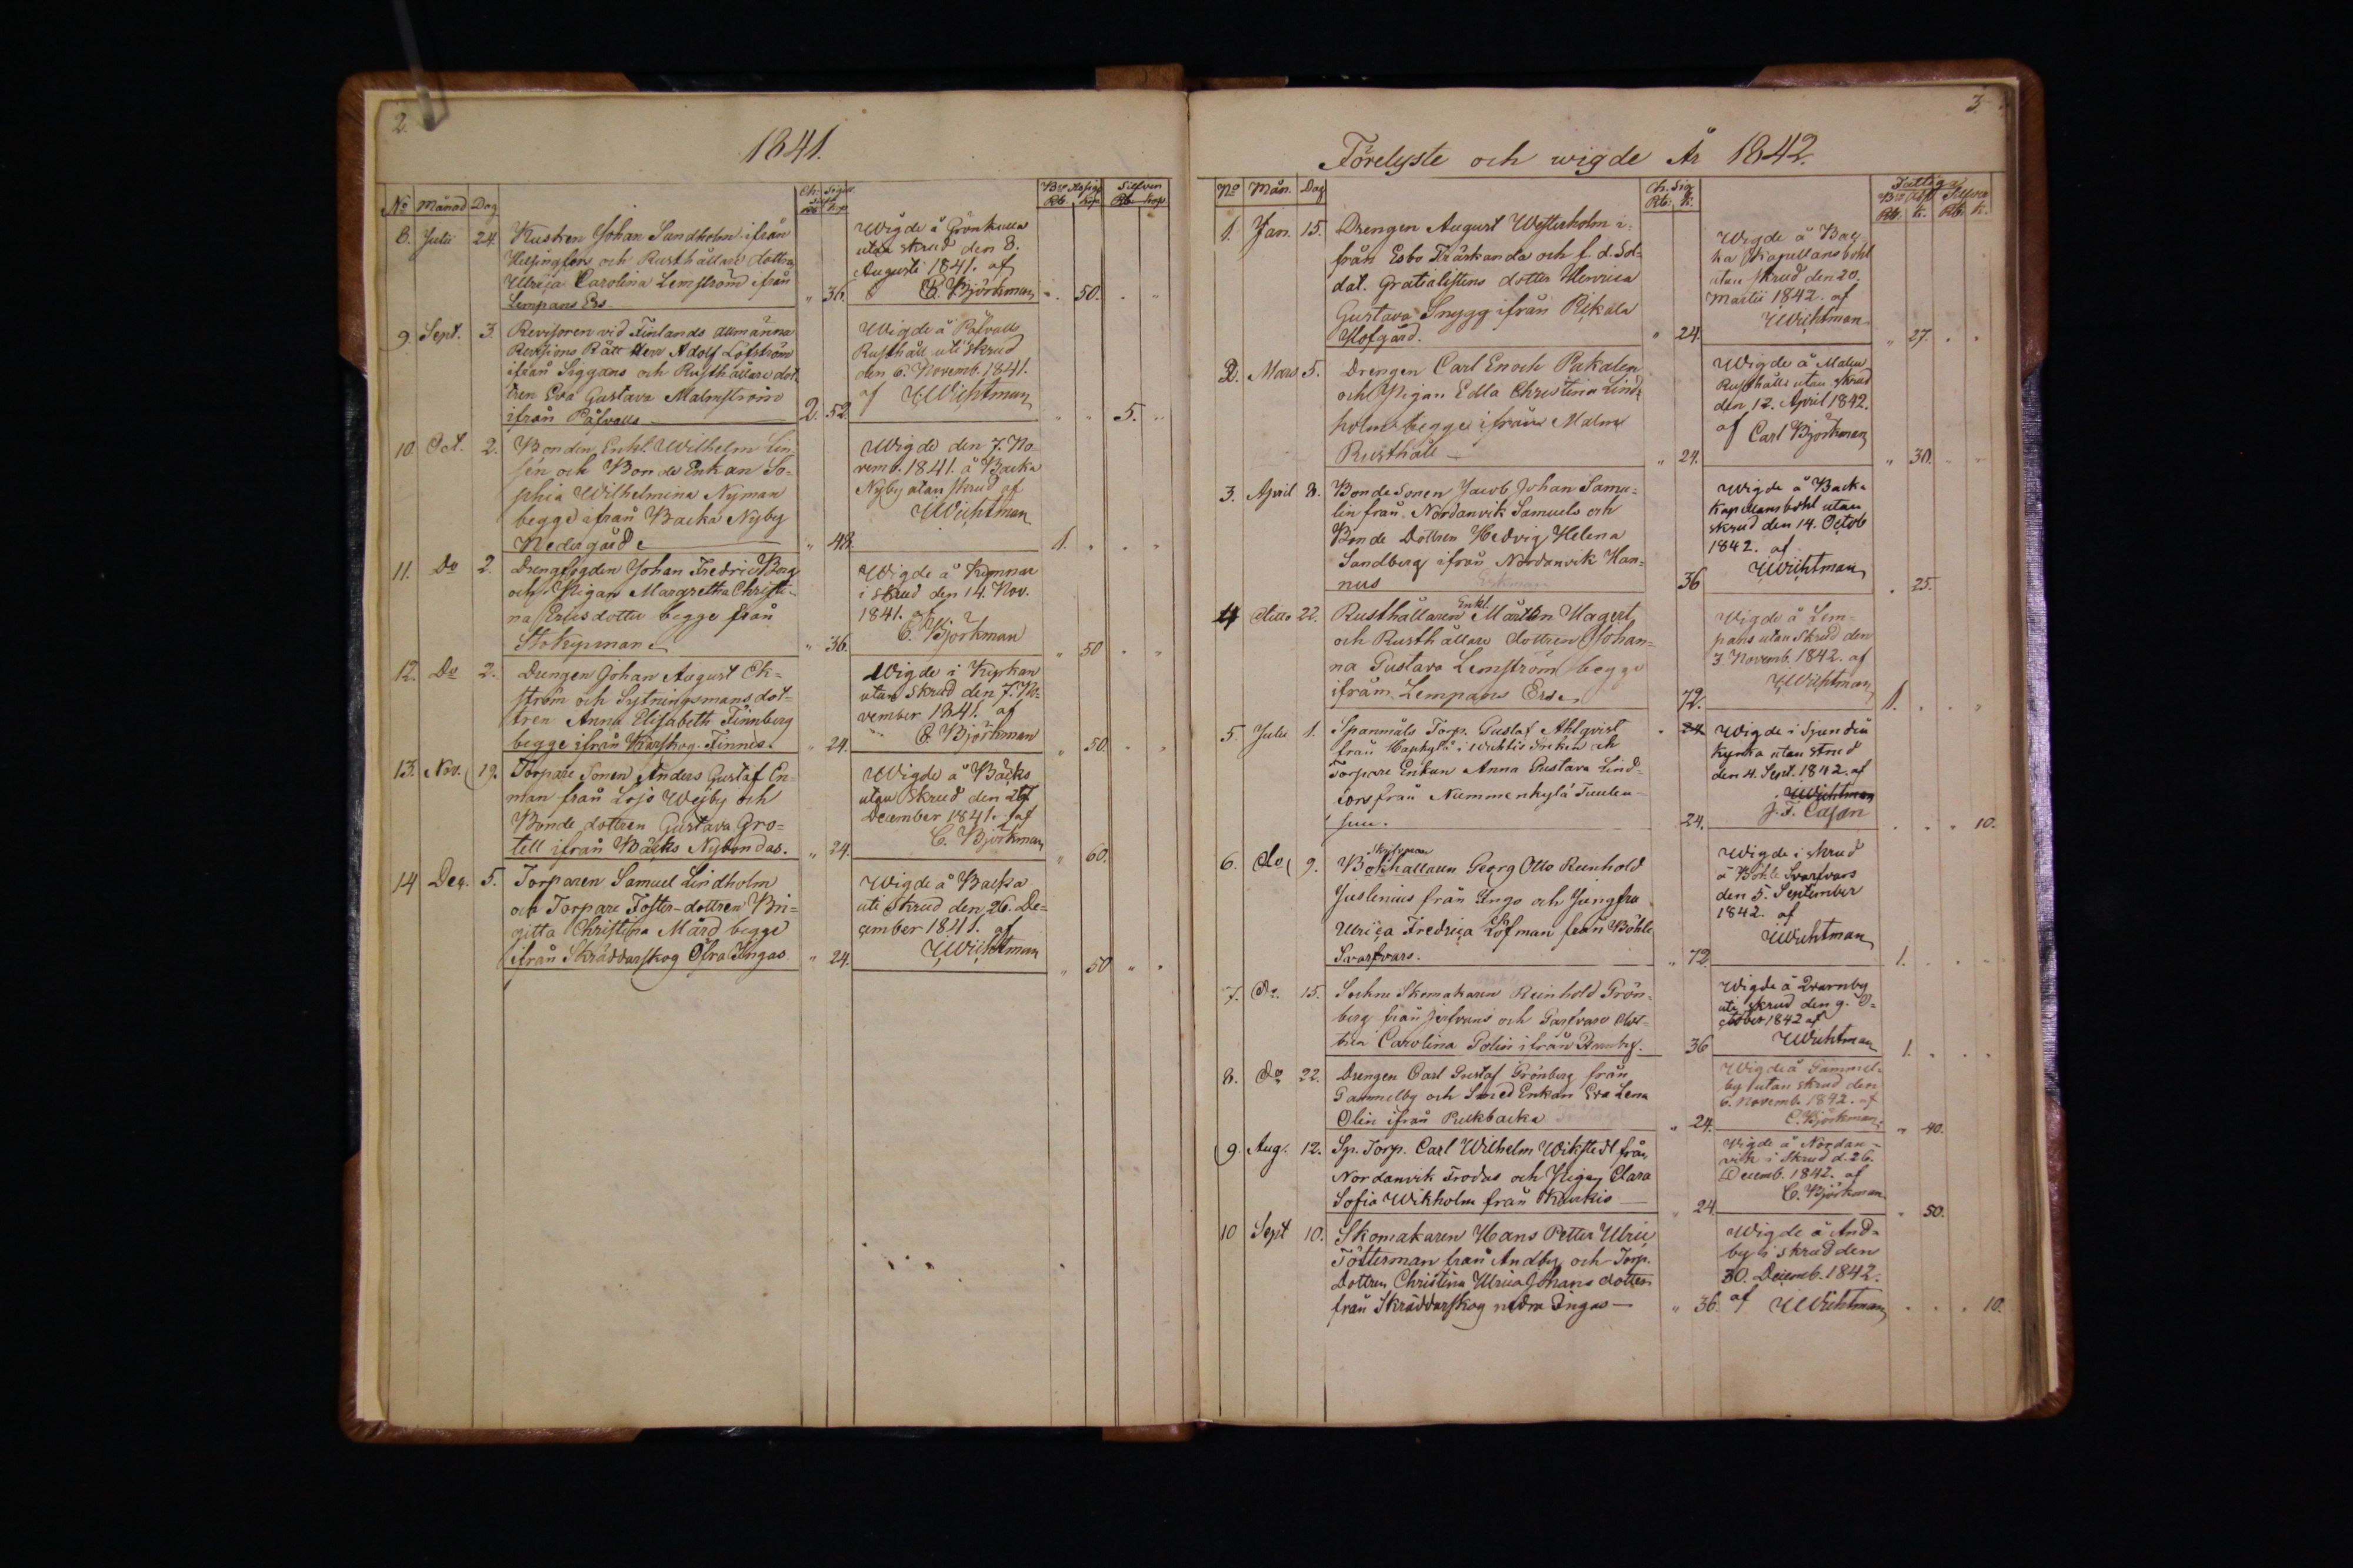 2.
1841.
No Månad Dag
Ch: Sigill
Silfv
Rb. Kop
Bco Assign
Rb. Kop
Silfver
Rb. Kop
8. Julii 24. Kusken Johan Sandholm ifrån
Helsingfors och Rusthållare dottren
Ulrica Carolina Lemström ifrån
Lempans Ers " 36.
Wigde å Grönkulla
utan skrud den 8.
Augusti 1841. af
C. Björkman " 50. " "
9. Sept. 3. Revisoren vid Finlands Allmänna
Revisions Rätt Herr Adolf Löfström
ifrån Siggans och Rusthållare dot
tren Eva Gustava Malmström
ifrån Påfvalls 2. 52
Wigde å Påfvalls
Rusthåll uti skrud
den 6. Novemb. 1841.
af Wichtman " " 5. "
10. Oct. 2. Bonden Enkl. Wilhelm Lin-
sén och Bonde Enkan So=
phia Wilhelmina Nyman
begge ifrån Backa Nyby
Nedergård " 48.
Wigde den 7. No
vemb. 1841. å Backa
Nyby utan skrud af
Wichtman 1. " " "
11. Do 2. Drengygden Johan Fredric Borg
och Pigan Margretha Christi-
na Ersdotter begge från
Stokypman " 36.
Wigde å Kypmar
i skrud den 14. Nov.
1841. af
C. Björkman " 50 " "
12. Do 2. Drengen Johan August Ek=
ström och Sytningsmans dot=
tren Anna Elisabeth Finnberg
begge ifrån Karskog Finnis. " 24.
Wigde i Kyrkan
utan skrud den 7. No
vember 1841. af
C. Björkman " 50. " "
13. Nov. 19. Torpare Sonen Anders Gustaf En=
man från Lojo Wejby och
Bonde dottren Gustava Gro=
tell ifrån Bäcks Nybondas. " 24.
Wigde å Bäcks
utan skrud den 27
December 1841. af
C. Björkman " 60.
14 Dec. 5. Torparen Samuel Lindholm
och Torpare Foster-dottren Bri=
gitta Christina Mård begge
ifrån Skräddarskog Öfra Ingas " 24.
Wigde å Backa
uti skrud den 26. De=
cember 1841. af
Wichtman " 50 " "
3
Förelyste och wigde År 1842.
No Mån. Dag
Ch. Sig
Rb. K.
Fattiga
Bco Ass Silfver
Rb. K. Rb. K.
1. Jan. 15. Drengen August Westerholm i=
från Esbo Träskanda och f. d. Sol=
dat. Gratialistens dotter Henrica
Gustava Snygg ifrån Pikala
Hofgård. " 24.
Wigde å Bac
ka Kapellans bohl
utan skrud den 20.
Martii 1842. af
Wichtman " 27. " "
2. Mars 5. Drengen Carl Enoch Pikalen
och Pigan Edla Christina Lind=
holm begge ifrån Malms
Rusthåll — " 24.
Wigde å Malms
Rusthåll utan skrud
den 12. April 1842.
af Carl Björkman " 30. " "
3. April 8. Bonde sonen Jacob Johan Samu=
lin från Nordanvik Samuels och
Bonde Dottren Hedvig Helena
Sandberg ifrån Nordanvik Han=
nus 36
Wigde å Backa
Kapellansbohl utan
skrud den 14. Octob
1842. af
Wichtman " 25.
4 ditto 22. Rusthållaren Enkl. Mårten Hagert
och Rusthållare dottren Johan=
na Gustava Lemström begge
ifrån Lempans Ers 72.
Wigde å Lem=
pans utan skrud den
3 Novemb. 1842. af
Wichtman 1. " " "
5 Julii 1. Spanmåls Torp. Gustaf Ahlqvist
från Haphylä i Wichtis Socken och
Torpare Enkan Anna Gustava Lind=
fors från Nummenkylä 24.
Wigde i Sjundiu
Kyrka utan skrud
den 4. Sept. 1842. af
Wichtman
J. F. Cajan " " " 10.
6. do 9. Bokhållaren Georg Otto Reinhold
Juslenius från Ingo och Jungfru
Ulrica Fredrica Löfman från Böhle
Svarfvars. " 72.
Wigde i skrud
å Böhle Svarfvars
den 5. September
1842. af
Wichtman 1. " " "
7. Do 15. Sockne Skomakaren Reinhold Grön=
berg från Jerfvans och Garfvare dot=
tren Carolina Polin ifrån 36
Wigde å Qvarnby
uti skrud den 9. O=
ctober 1842 af
Wichtman 1. " " "
8. Do 22. Drengen Carl Gustaf Grönberg från
Gammelby och Smed Enkan Eva Lena
Olin ifrån Pickbacka " 24.
Wigde å Gammel=
by utan skrud den
6. Novemb. 1842. af
C. Björkman. " 40.
9. Aug. 12. Sp. Torp. Carl Wilhelm Wikstedt från
Nordanvik Frodas och Pigan Clara
Sofia Wikholm från Kurkis — " 24
Wigde å Nordan-
vik i skrud d. 26.
Decemb. 1842. af
C. Björkman " 50.
10 Sept 10. Skomakaren Hans Petter Ulric
Fösterman från Andby och Torp.
Dottren Christina Ulrica Johans dotter
från Skräddarskog nedra Ingas — " 36.
Wigde å And=
by i skrud den
30. Decemb. 1842.
af Wichtman " " " 10.